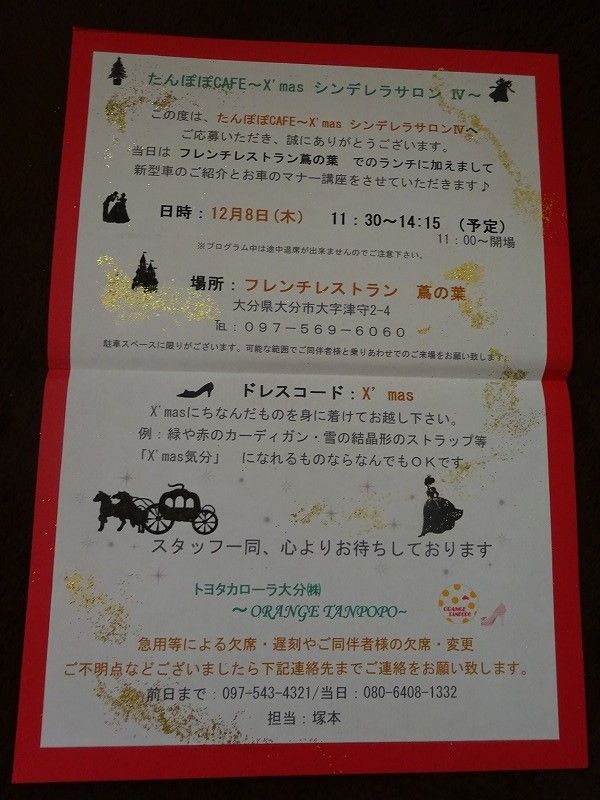 たんぽぽCAFE～X'mas シンデレラサロン Ⅳ～
この度は、たんぽぽCAFE～X'mas シンデレラサロンⅣへ
ご応募いただき、誠にありがとうございます。
当日は フレンチレストラン蔦の葉 でのランチに加えまして
新型車のご紹介とお車のマナー講座をさせていただきます♪
日時：12月8日(木) 11：30～14:15 (予定)
11：00～開場
※プログラム中は途中退席が出来ませんのでご注意下さい。
場所：フレンチレストラン 蔦の葉
大分県大分市大字津守2-4
℡：０９７－５６９－６０６０
駐車スペースに限りがございます。可能な範囲でご同伴者様と乗りあわせでのご来場をお願い致します。
ドレスコード：X' mas
X'masにちなんだものを身に着けてお越し下さい。
例：緑や赤のカーディガン・雪の結晶形のストラップ等
「X'mas気分」 になれるものならなんでもＯＫです。
スタッフ一同、心よりお待ちしております
トヨタカローラ大分㈱
～ORANGE TANPOPO~
ORANGE
TANPOPO
急用等による欠席・遅刻やご同伴者様の欠席・変更
ご不明点などございましたら下記連絡先までご連絡をお願い致します。
前日まで：097-543-4321/当日：080-6408-1332
担当：塚本